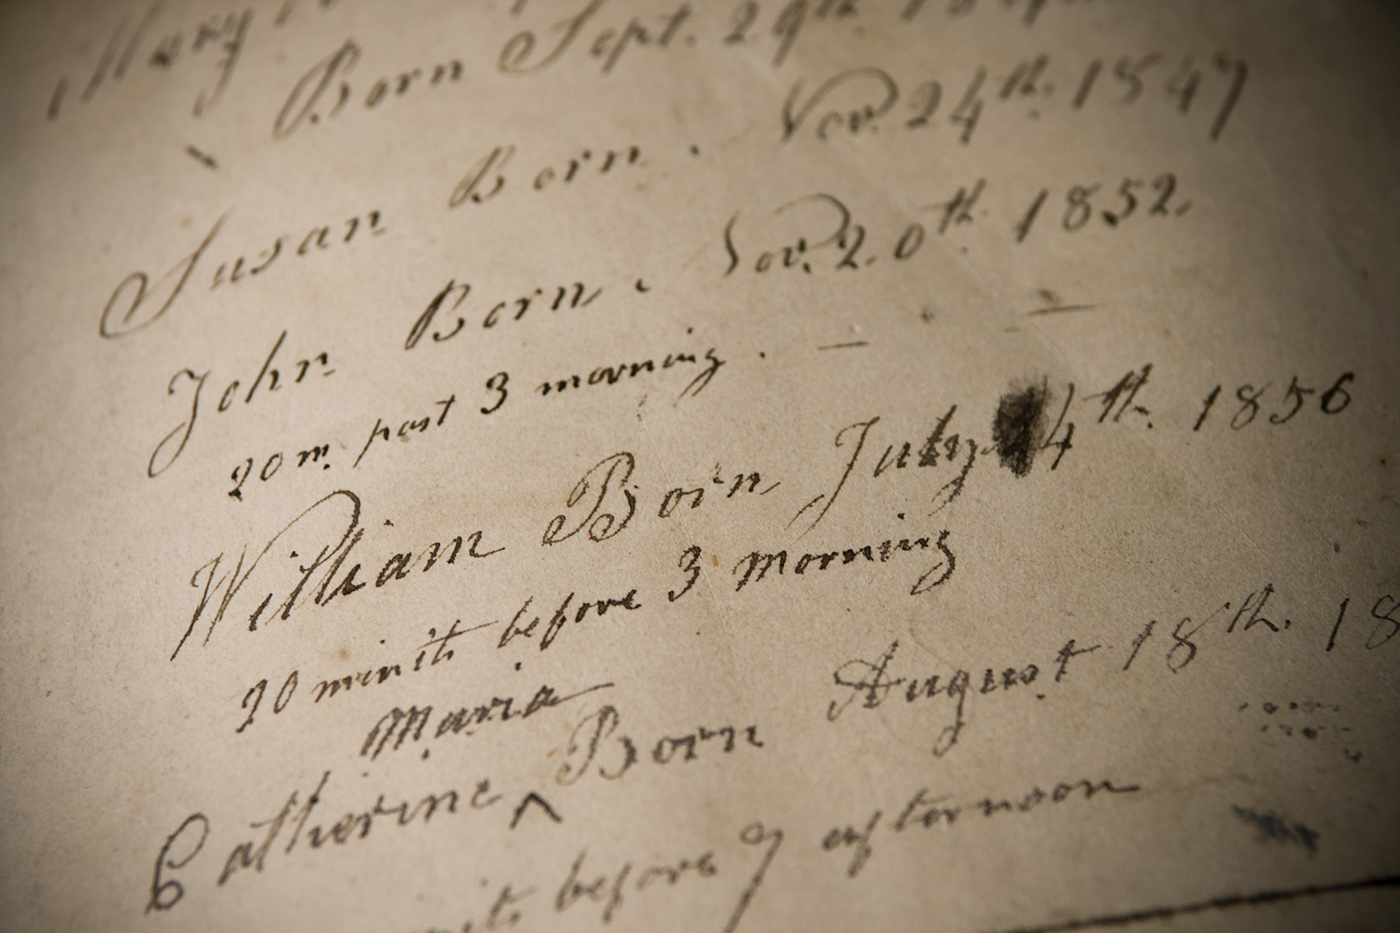 Mary
Born Sept. 29th 18
Susan Born. Nov. 24th. 1847
John Born. Nov. 20th. 1852.
20 m. past 3 morning. —
William Born July 4th. 1856
20 minits before 3 Morning
Maria
Catherine ^ Born August 18th. 18
before 7 afternoon